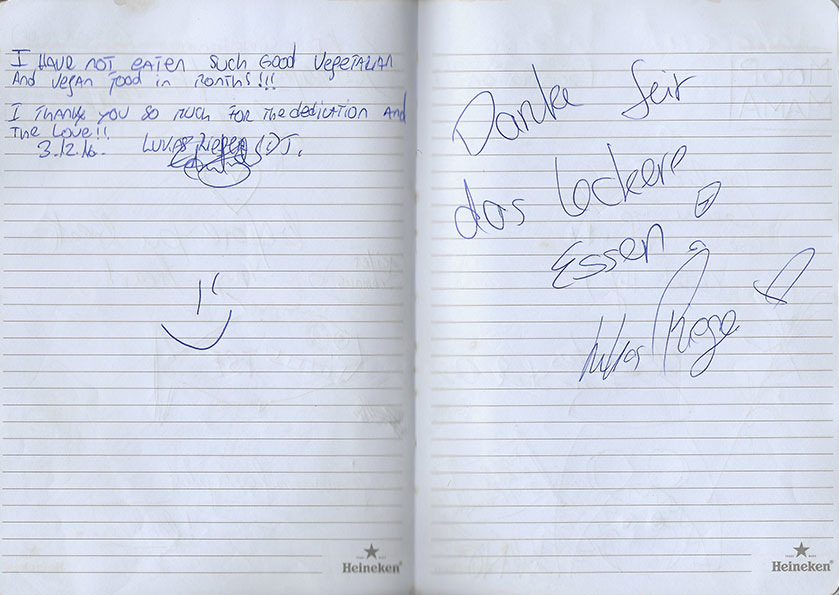 I HAVE NOT EATEN SUCH GOOD VEGETARIAN
And vegan food in MONTHS!!!
I THANK YOU SO MUCH FOR THE dedication And
THE LOVE!!
3.12.16.
DJ.
Heineken®
Danke für
das leckere
Essen
Heineken®